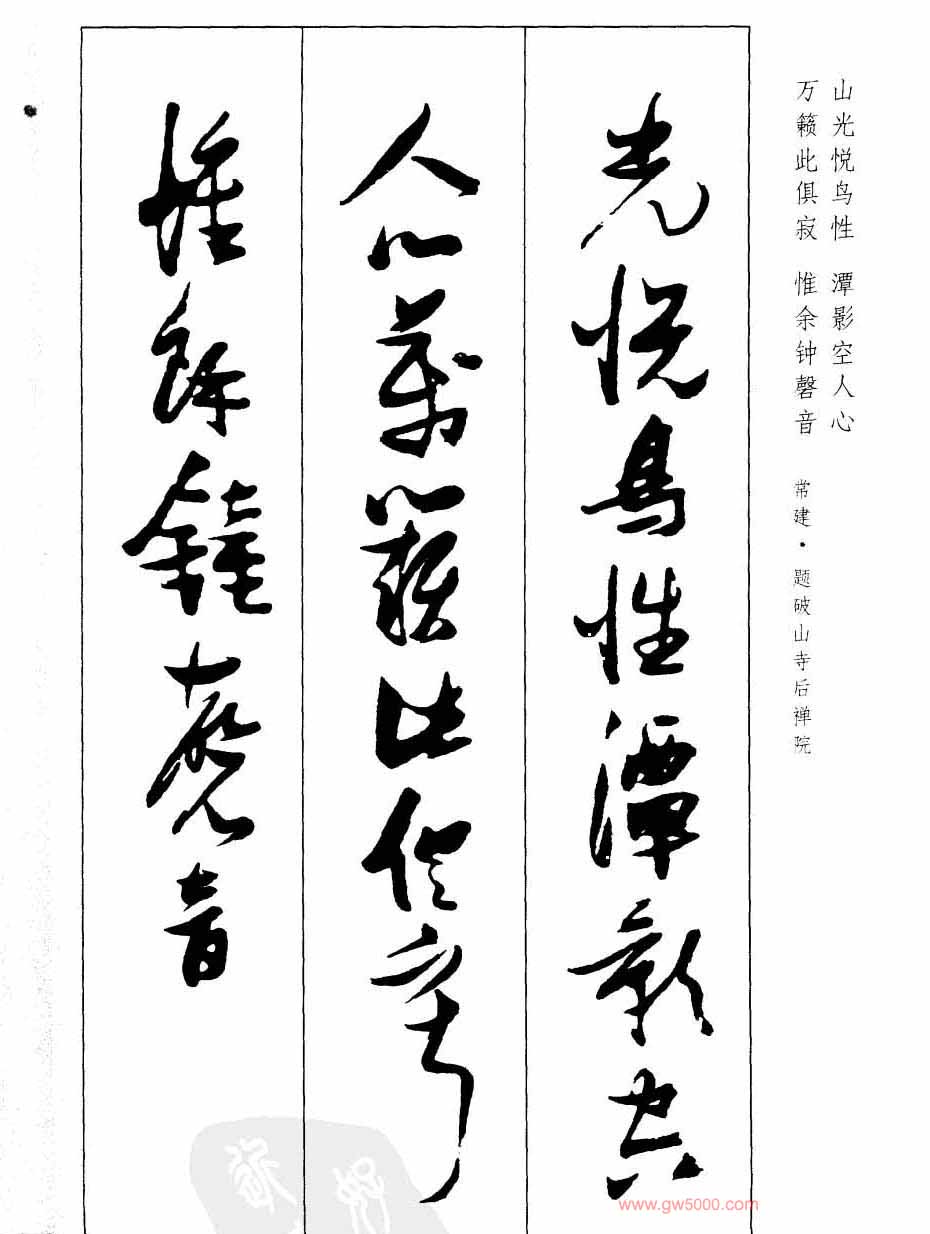 山光悦鸟性 潭影空人心
万籁此俱寂 惟余钟磬音 常建·题破山寺后禅院
光悦鳥性潭影空
人心萬籟此俱寂
惟餘鐘磬音
www.gw5000.com